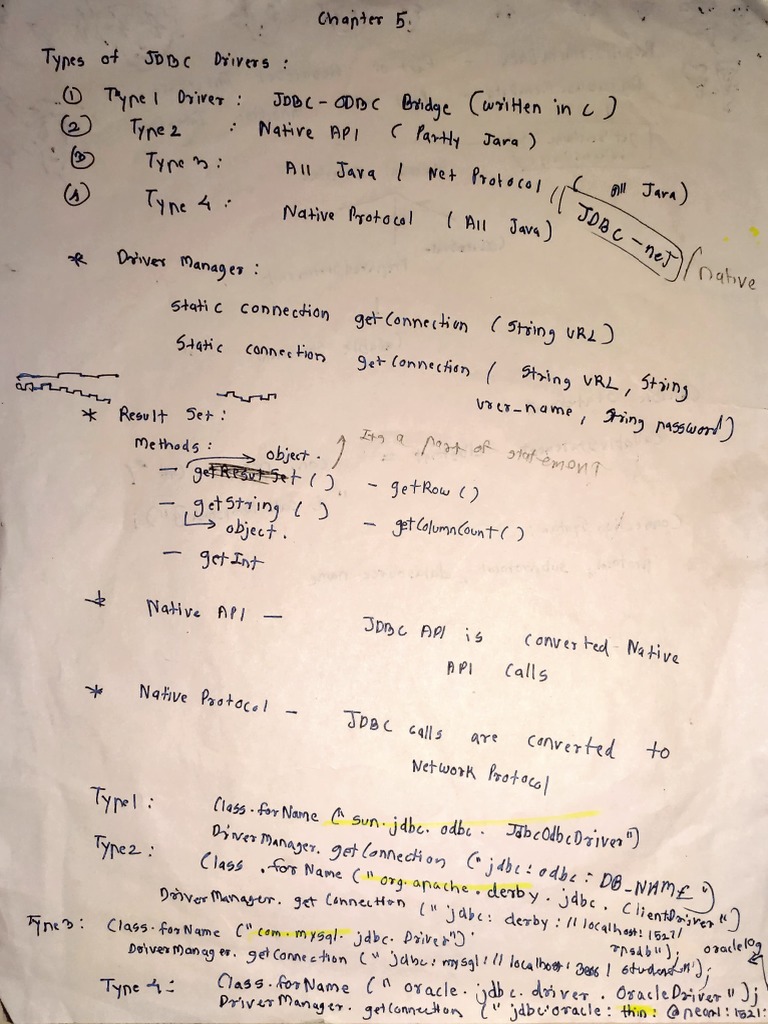 Chapter 5.
Types of JDBC Drivers :
(1) Type 1 Driver : JDBC-ODBC Bridge (written in c)
(2) Type 2 : Native API (Partly Java)
(3) Type 3 : All Java / Net Protocol (All Java)
// JDBC-net / native
(4) Type 4 : Native Protocol (All Java)
* Driver Manager :
Static connection getConnection (String URL)
Static connection getConnection (String URL, String
user_name, String password)
* Result Set :
Methods : object. Its a part of statement
- getResultSet () - getRow ()
- getString ()
object. - getColumnCount ()
- getInt
* Native API - JDBC API is converted Native
API calls
* Native Protocol - JDBC calls are converted to
Network Protocol
Type1 : Class.forName ("sun.jdbc.odbc.JdbcOdbcDriver")
DriverManager.getConnection ("jdbc:odbc:DB_NAME")
Type2 : Class.forName ("org.apache.derby.jdbc.ClientDriver")
DriverManager.getConnection ("jdbc:derby://localhost:1527/
rpsdb");
Type3 : Class.forName ("com.mysql.jdbc.Driver")
DriverManager.getConnection ("jdbc:mysql://localhost:3306/student");
Type 4 : Class.forName ("oracle.jdbc.driver.OracleDriver");
DriverManager.getConnection ("jdbc:oracle:thin:@neon:1521: